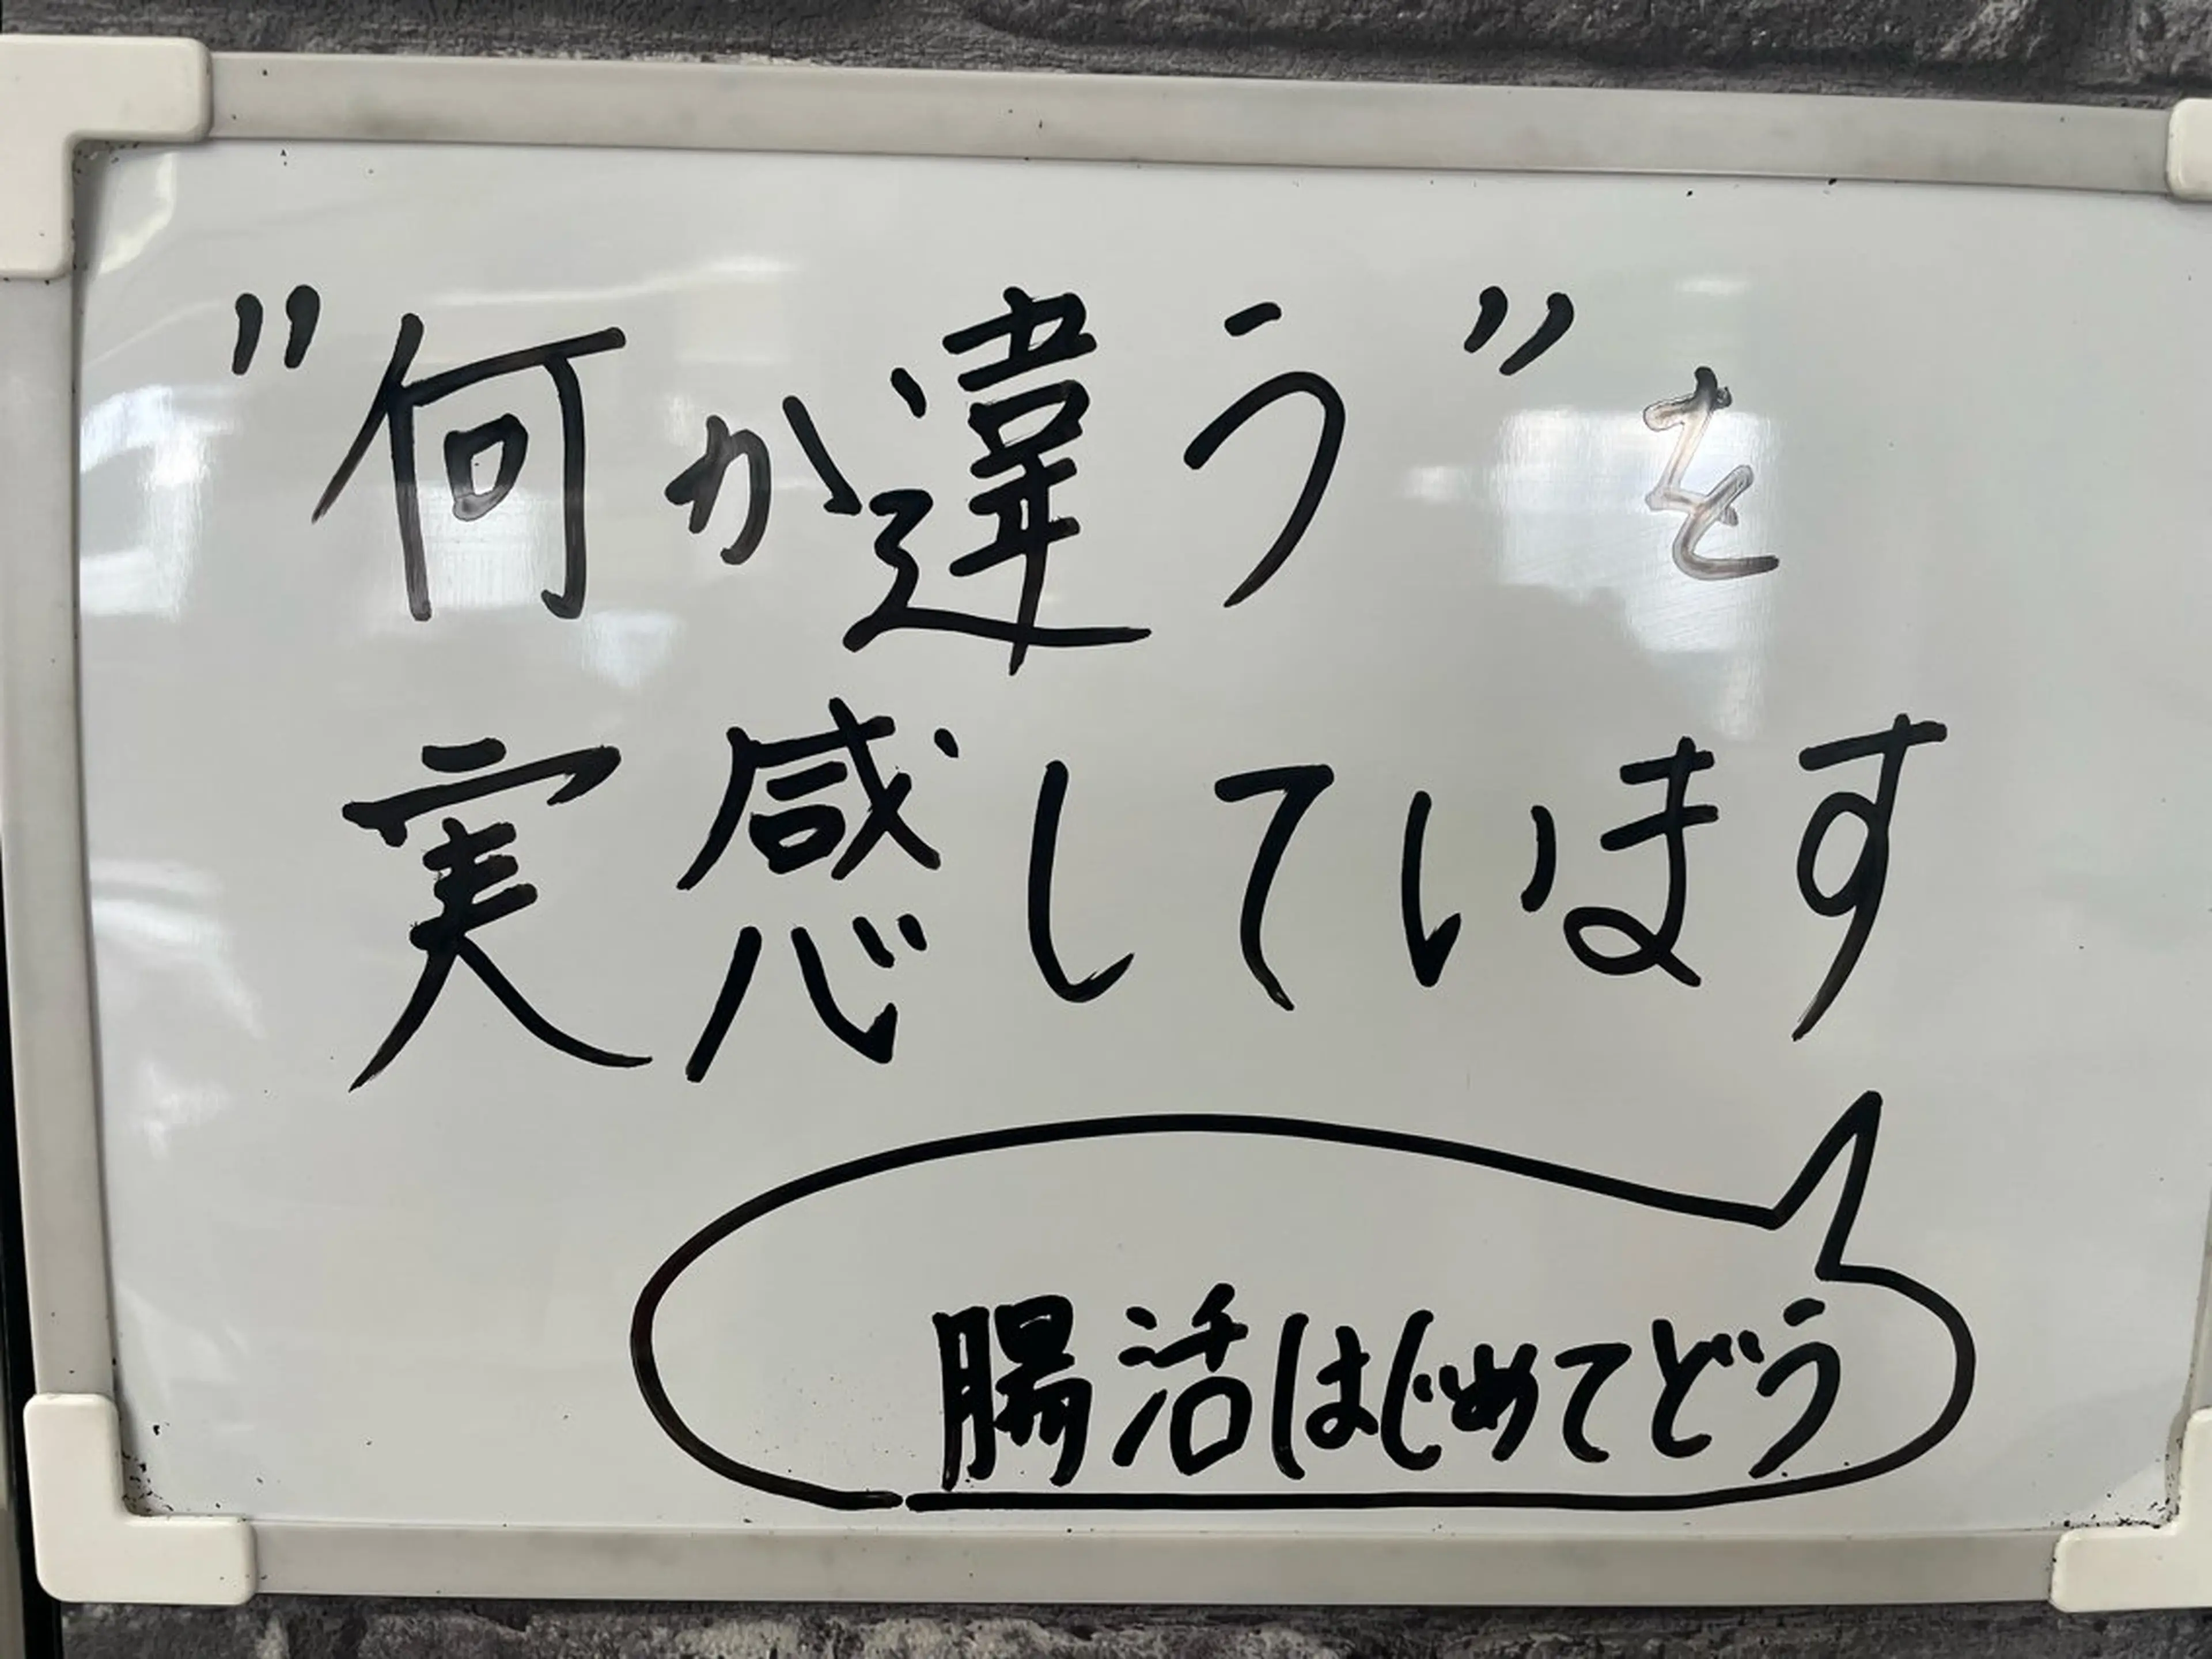 "何か違う"を
実感しています
腸活はじめてどう